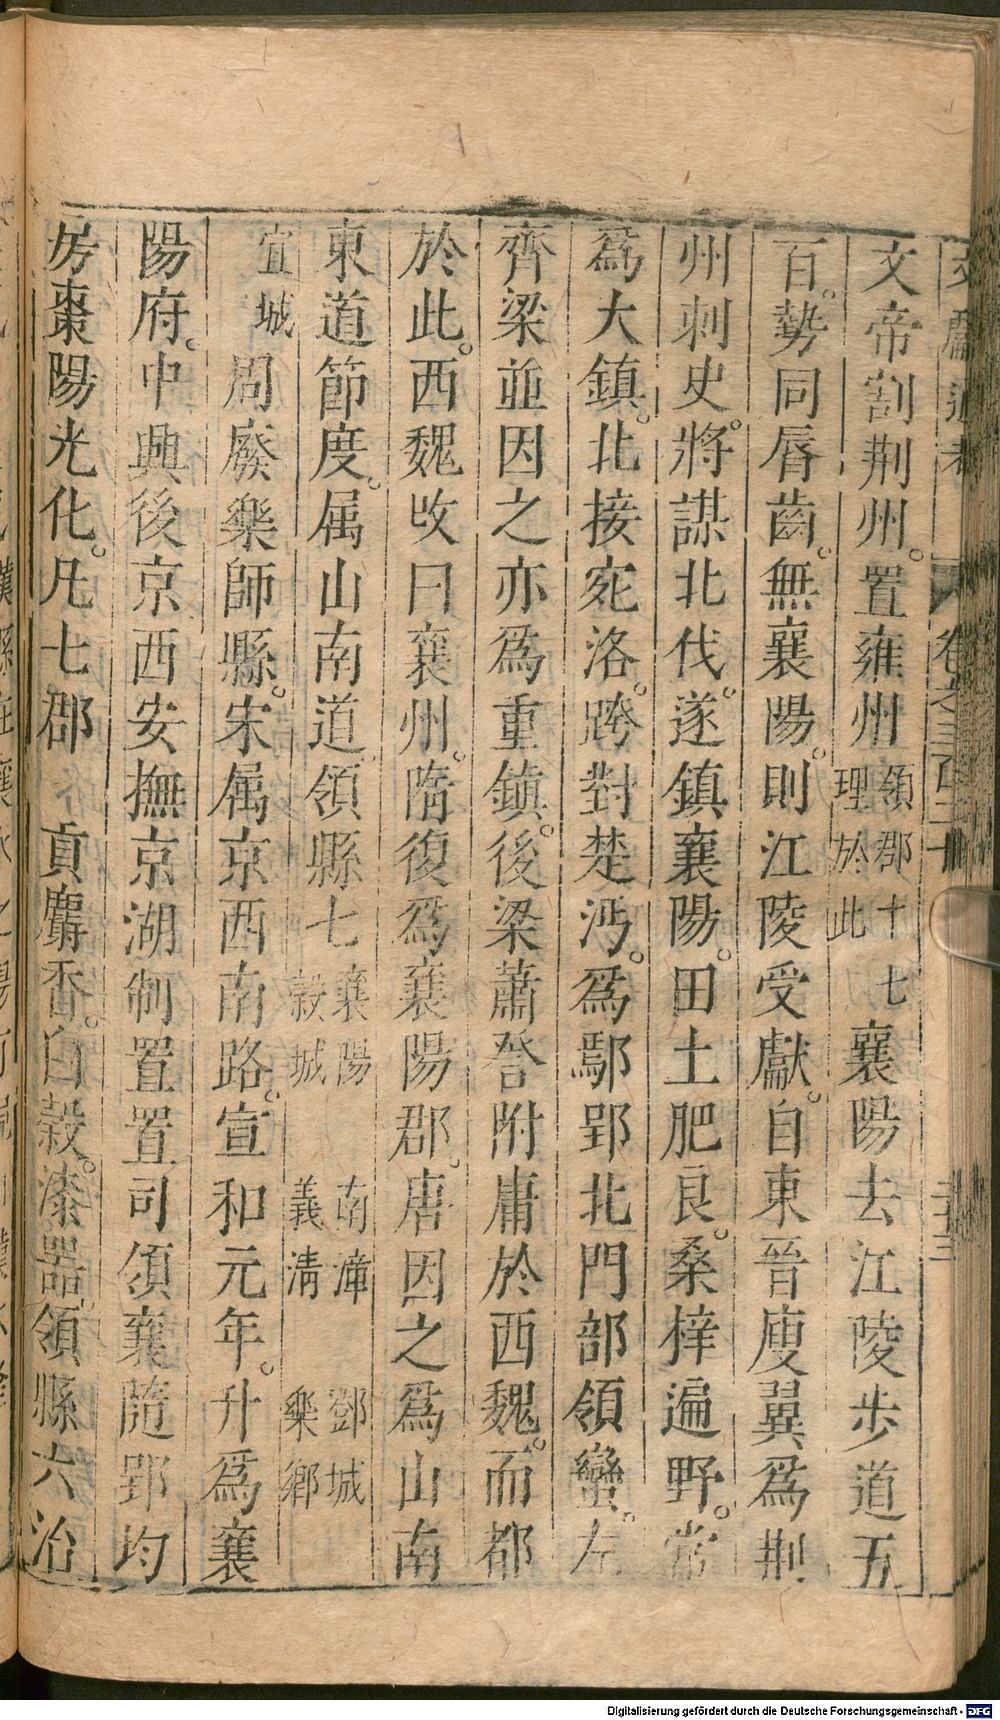 文獻通考 卷之三百二十 二十三
文帝割荆州。置雍州領郡十七理於此襄陽去江陵步道五
百。勢同唇齒。無襄陽。則江陵受獻。自東晉庾翼爲荆
州刺史。將謀北伐。遂鎮襄陽。田土肥良。桑梓遍野。常
爲大鎮。北接宛洛。跨對楚沔。爲鄢郢北門部領蠻。左
齊梁並因之亦爲重鎮。後梁蕭詧附庸於西魏。而都
於此。西魏改曰襄州。隋復爲襄陽郡。唐因之爲山南
東道節度。属山南道領縣七襄陽 南漳 鄧城 穀城 義清 樂鄉
宜城 周廢樂師縣。宋属京西南路。宣和元年。升爲襄
陽府。中興後京西安撫京湖制置置司領襄隨郢均
房棗陽光化。凡七郡 貢麝香。白穀。漆器。領縣六治
Digitalisierung gefördert durch die Deutsche Forschungsgemeinschaft - DFG